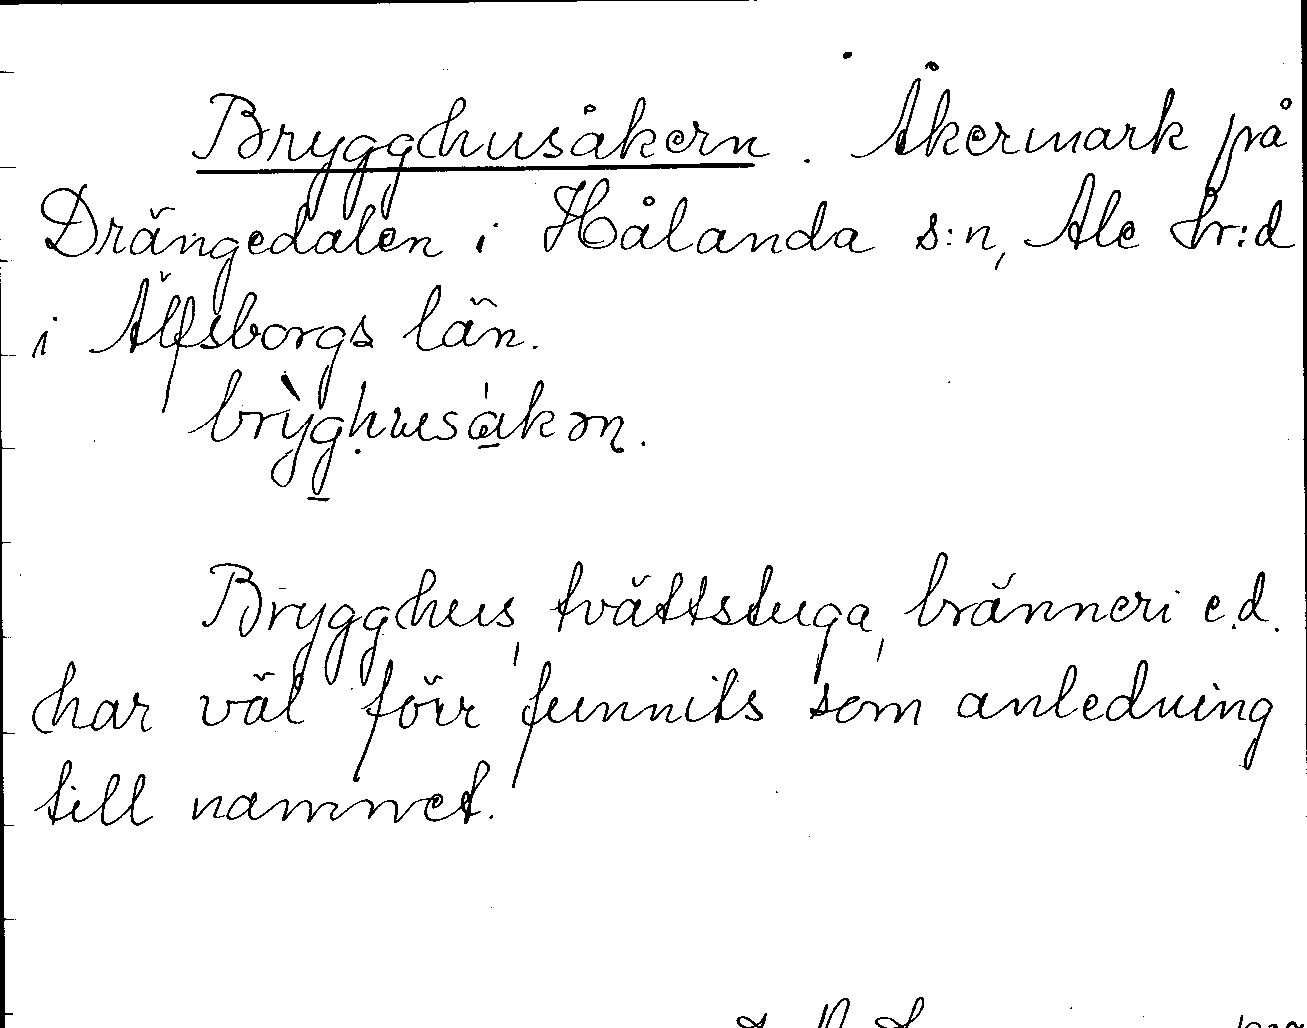 Brygghusåkern. Åkermark på
Drängedalen i Hålanda s:n, Ale hr:d
i Älfsborgs län.
brỳg̲husåkən.
Brygghus, tvättstuga, bränneri e.d.
har väl förr funnits som anledning
till namnet.